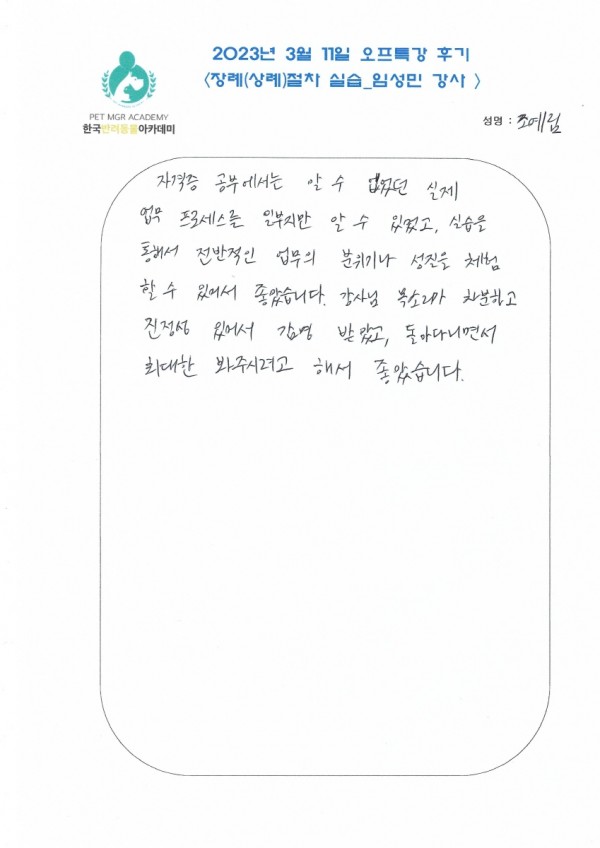 2023년 3월 11일 오프특강 후기
<장례(상례)절차 실습_임성민 강사 >
PET MGR ACADEMY
한국반려동물아카데미
성명 : 조예림
자격증 공부에서는 알 수 없었던 실제
업무 프로세스를 일부지만 알 수 있었고, 실습을
통해서 전반적인 업무의 분위기나 성질을 체험
할 수 있어서 좋았습니다. 강사님 목소리가 차분하고
진정성 있어서 감명 받았고, 돌아다니면서
최대한 봐주시려고 해서 좋았습니다.